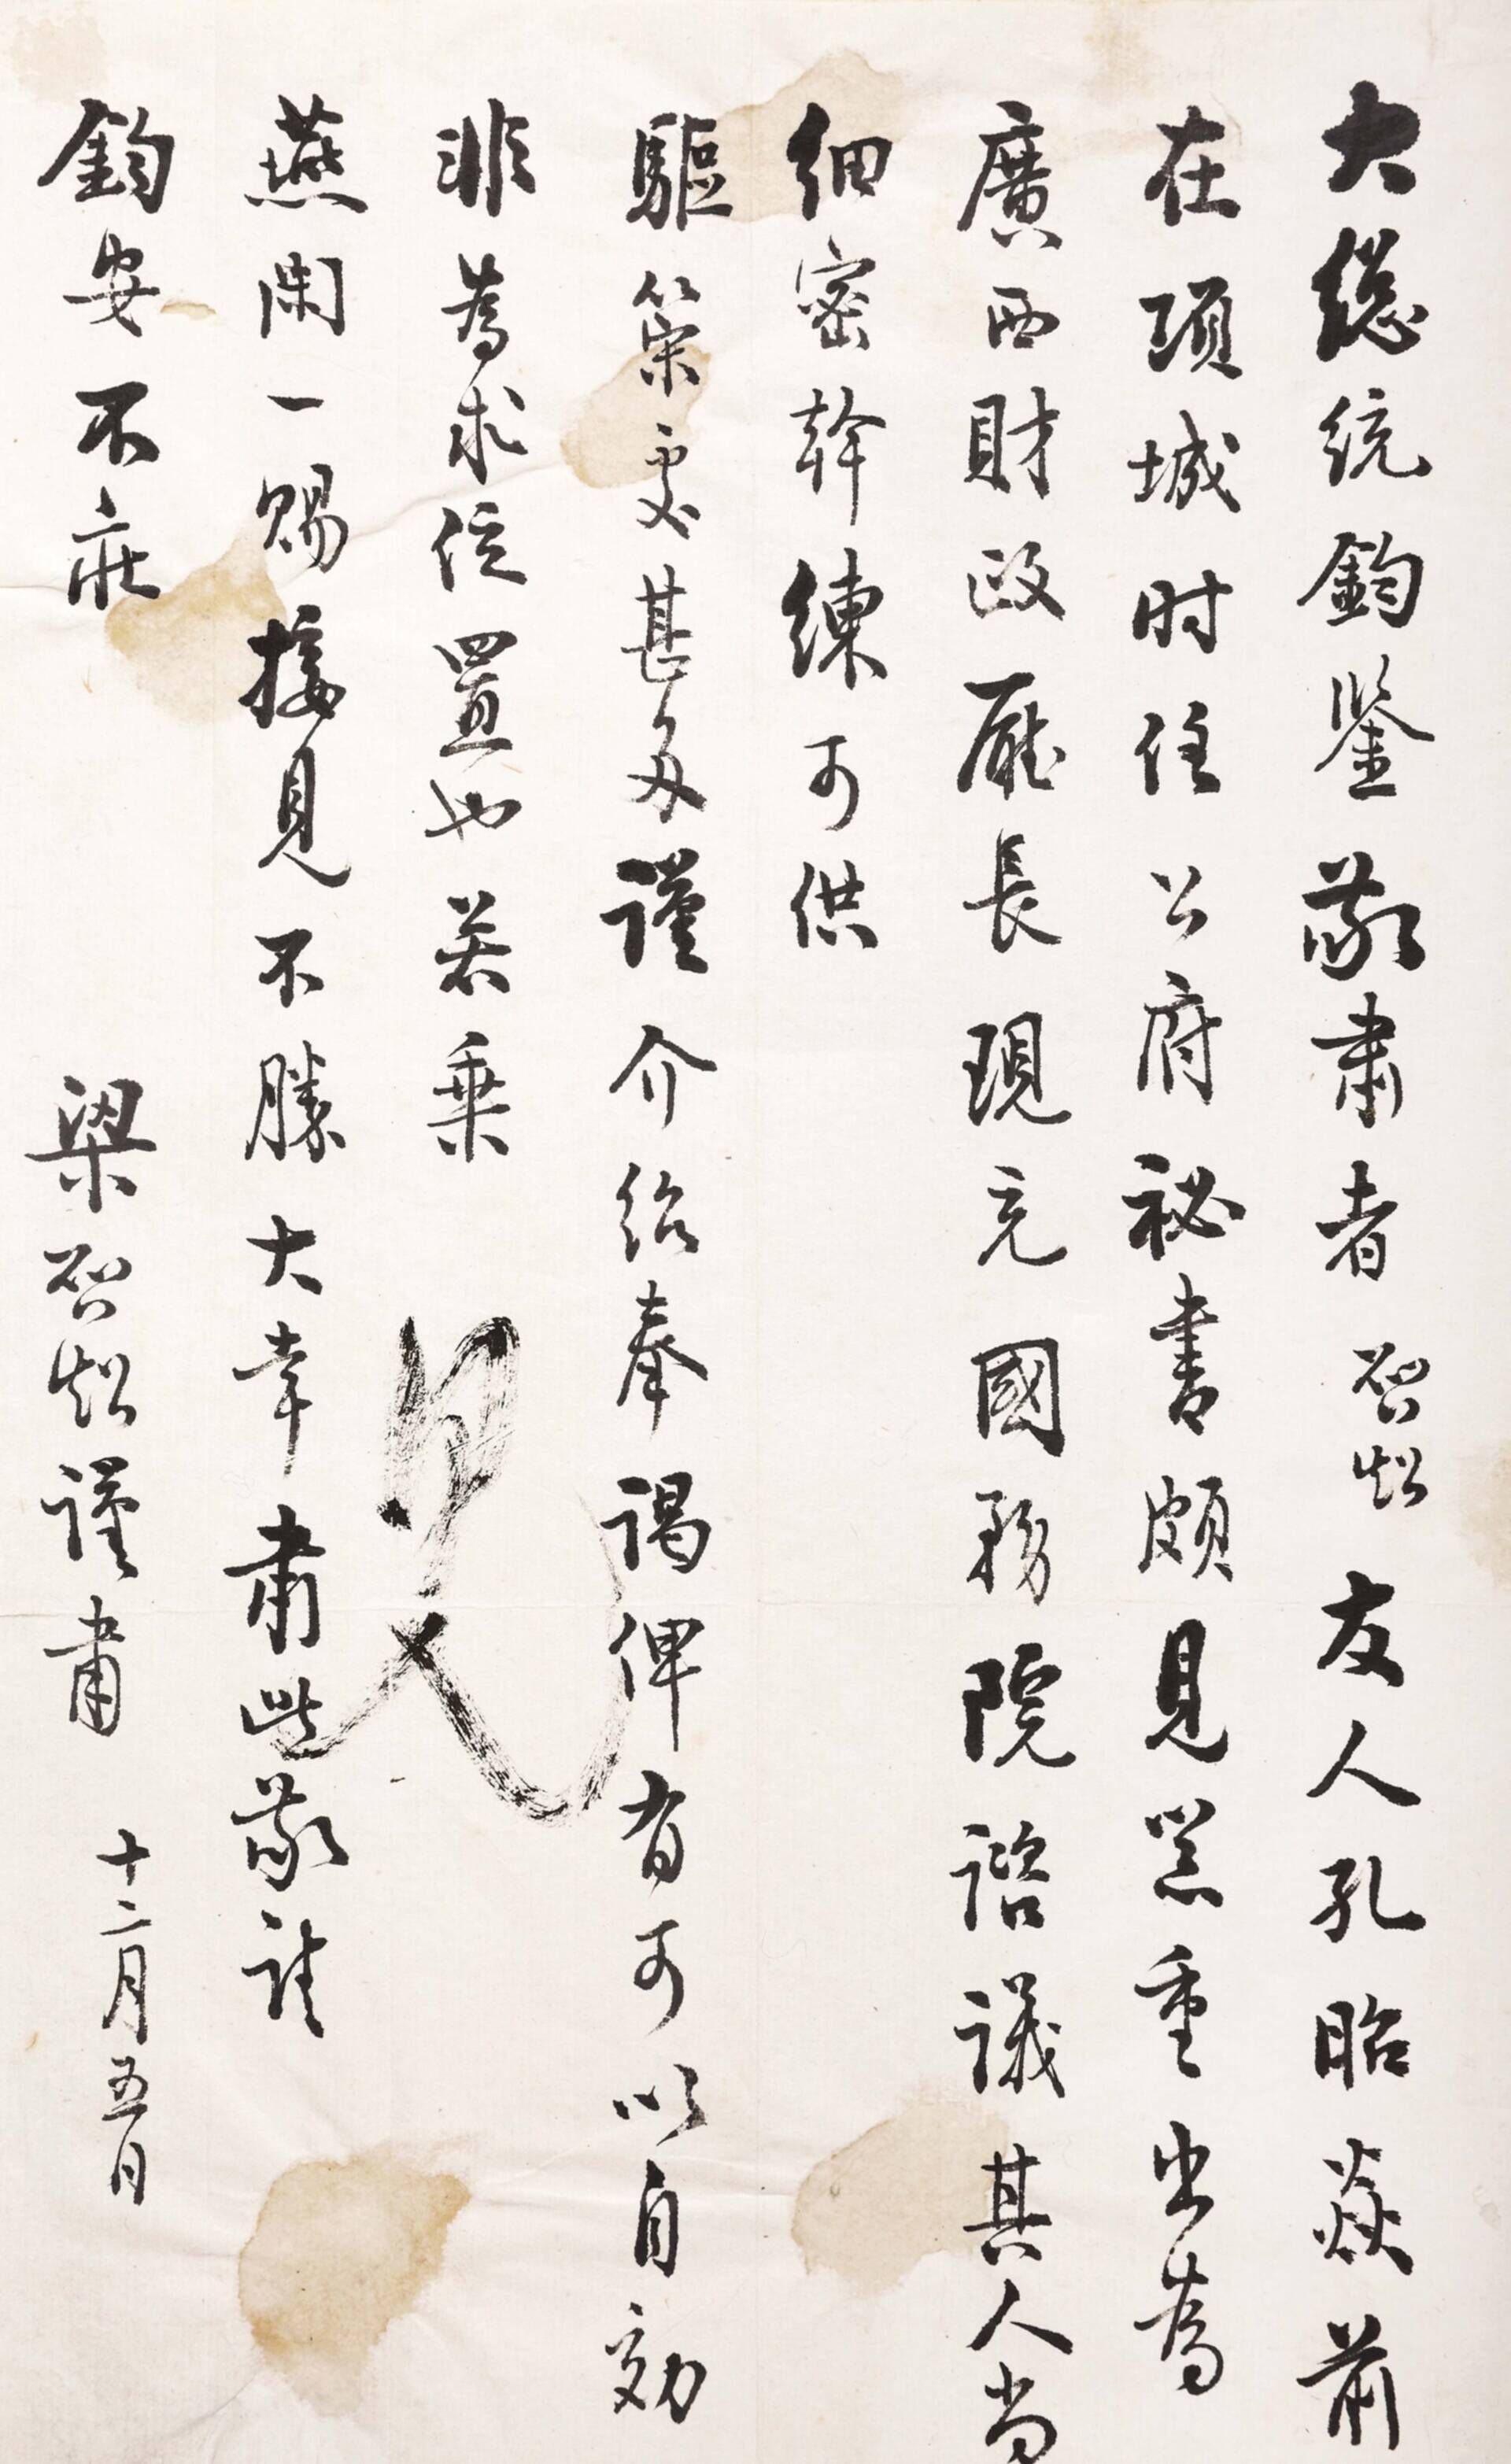 大總統鈞鑒敬肅者啓超友人孔昭焱前
在項城时任公府祕書頗見器重出為
廣西財政廳長現充國務院諮議其人尚
細密幹練可供
驅策處甚多謹介紹奉謁俾有可以自効
非為求位置也若乗
燕閑一賜接見不勝大幸肅此敬請
鈞安不莊
梁啓超謹肅 十二月五日